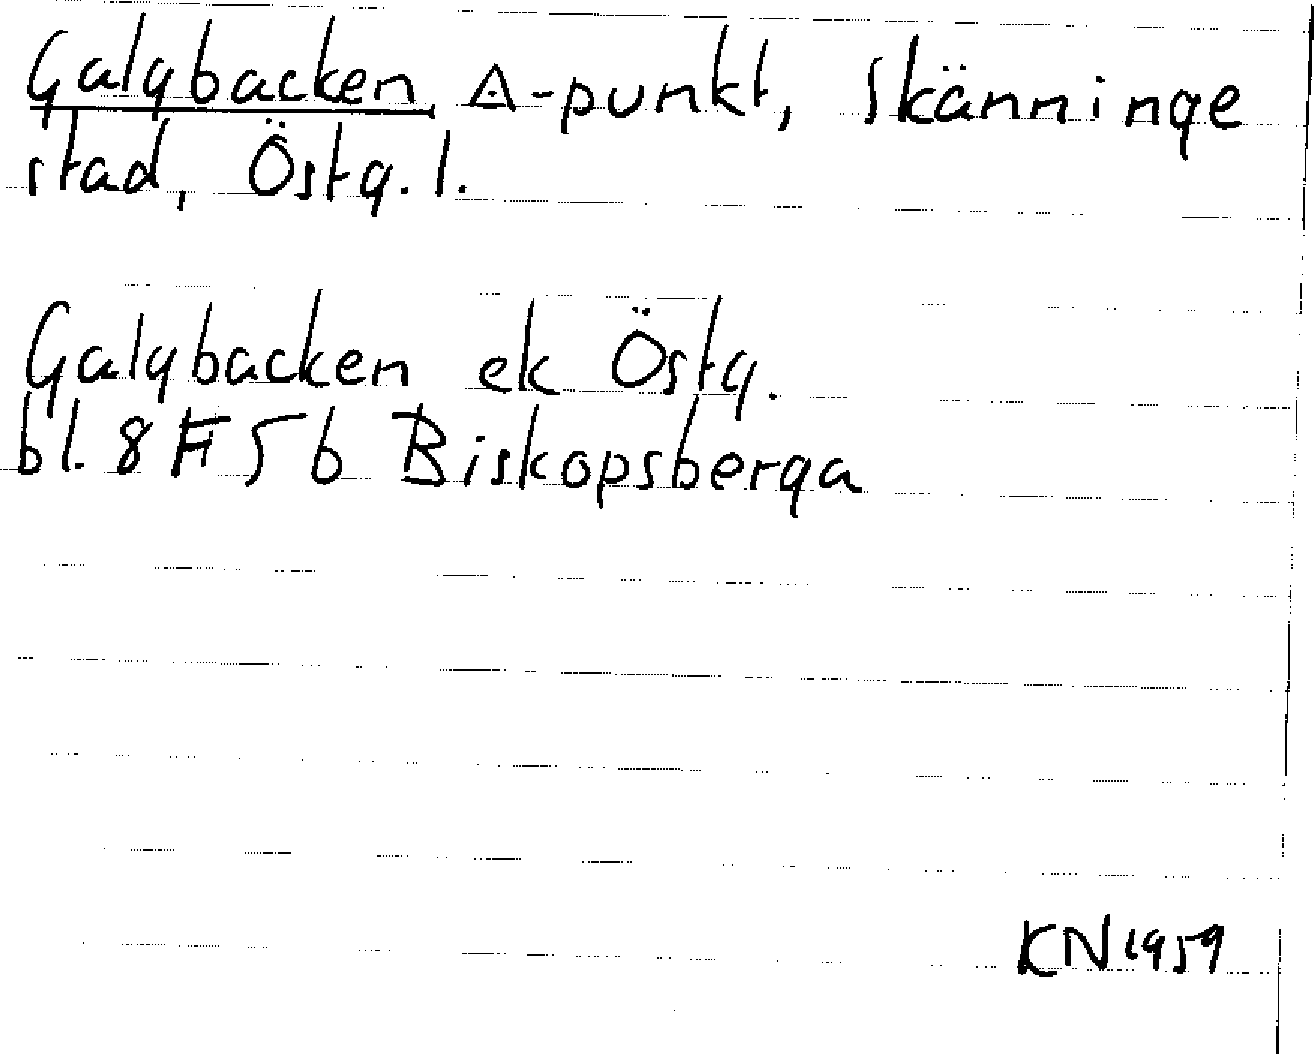 Galgbacken, △-punkt, Skänninge
stad, Östg. l.
Galgbacken ek Östg.
bl. 8 F 5 b Biskopsberga
KN 1959